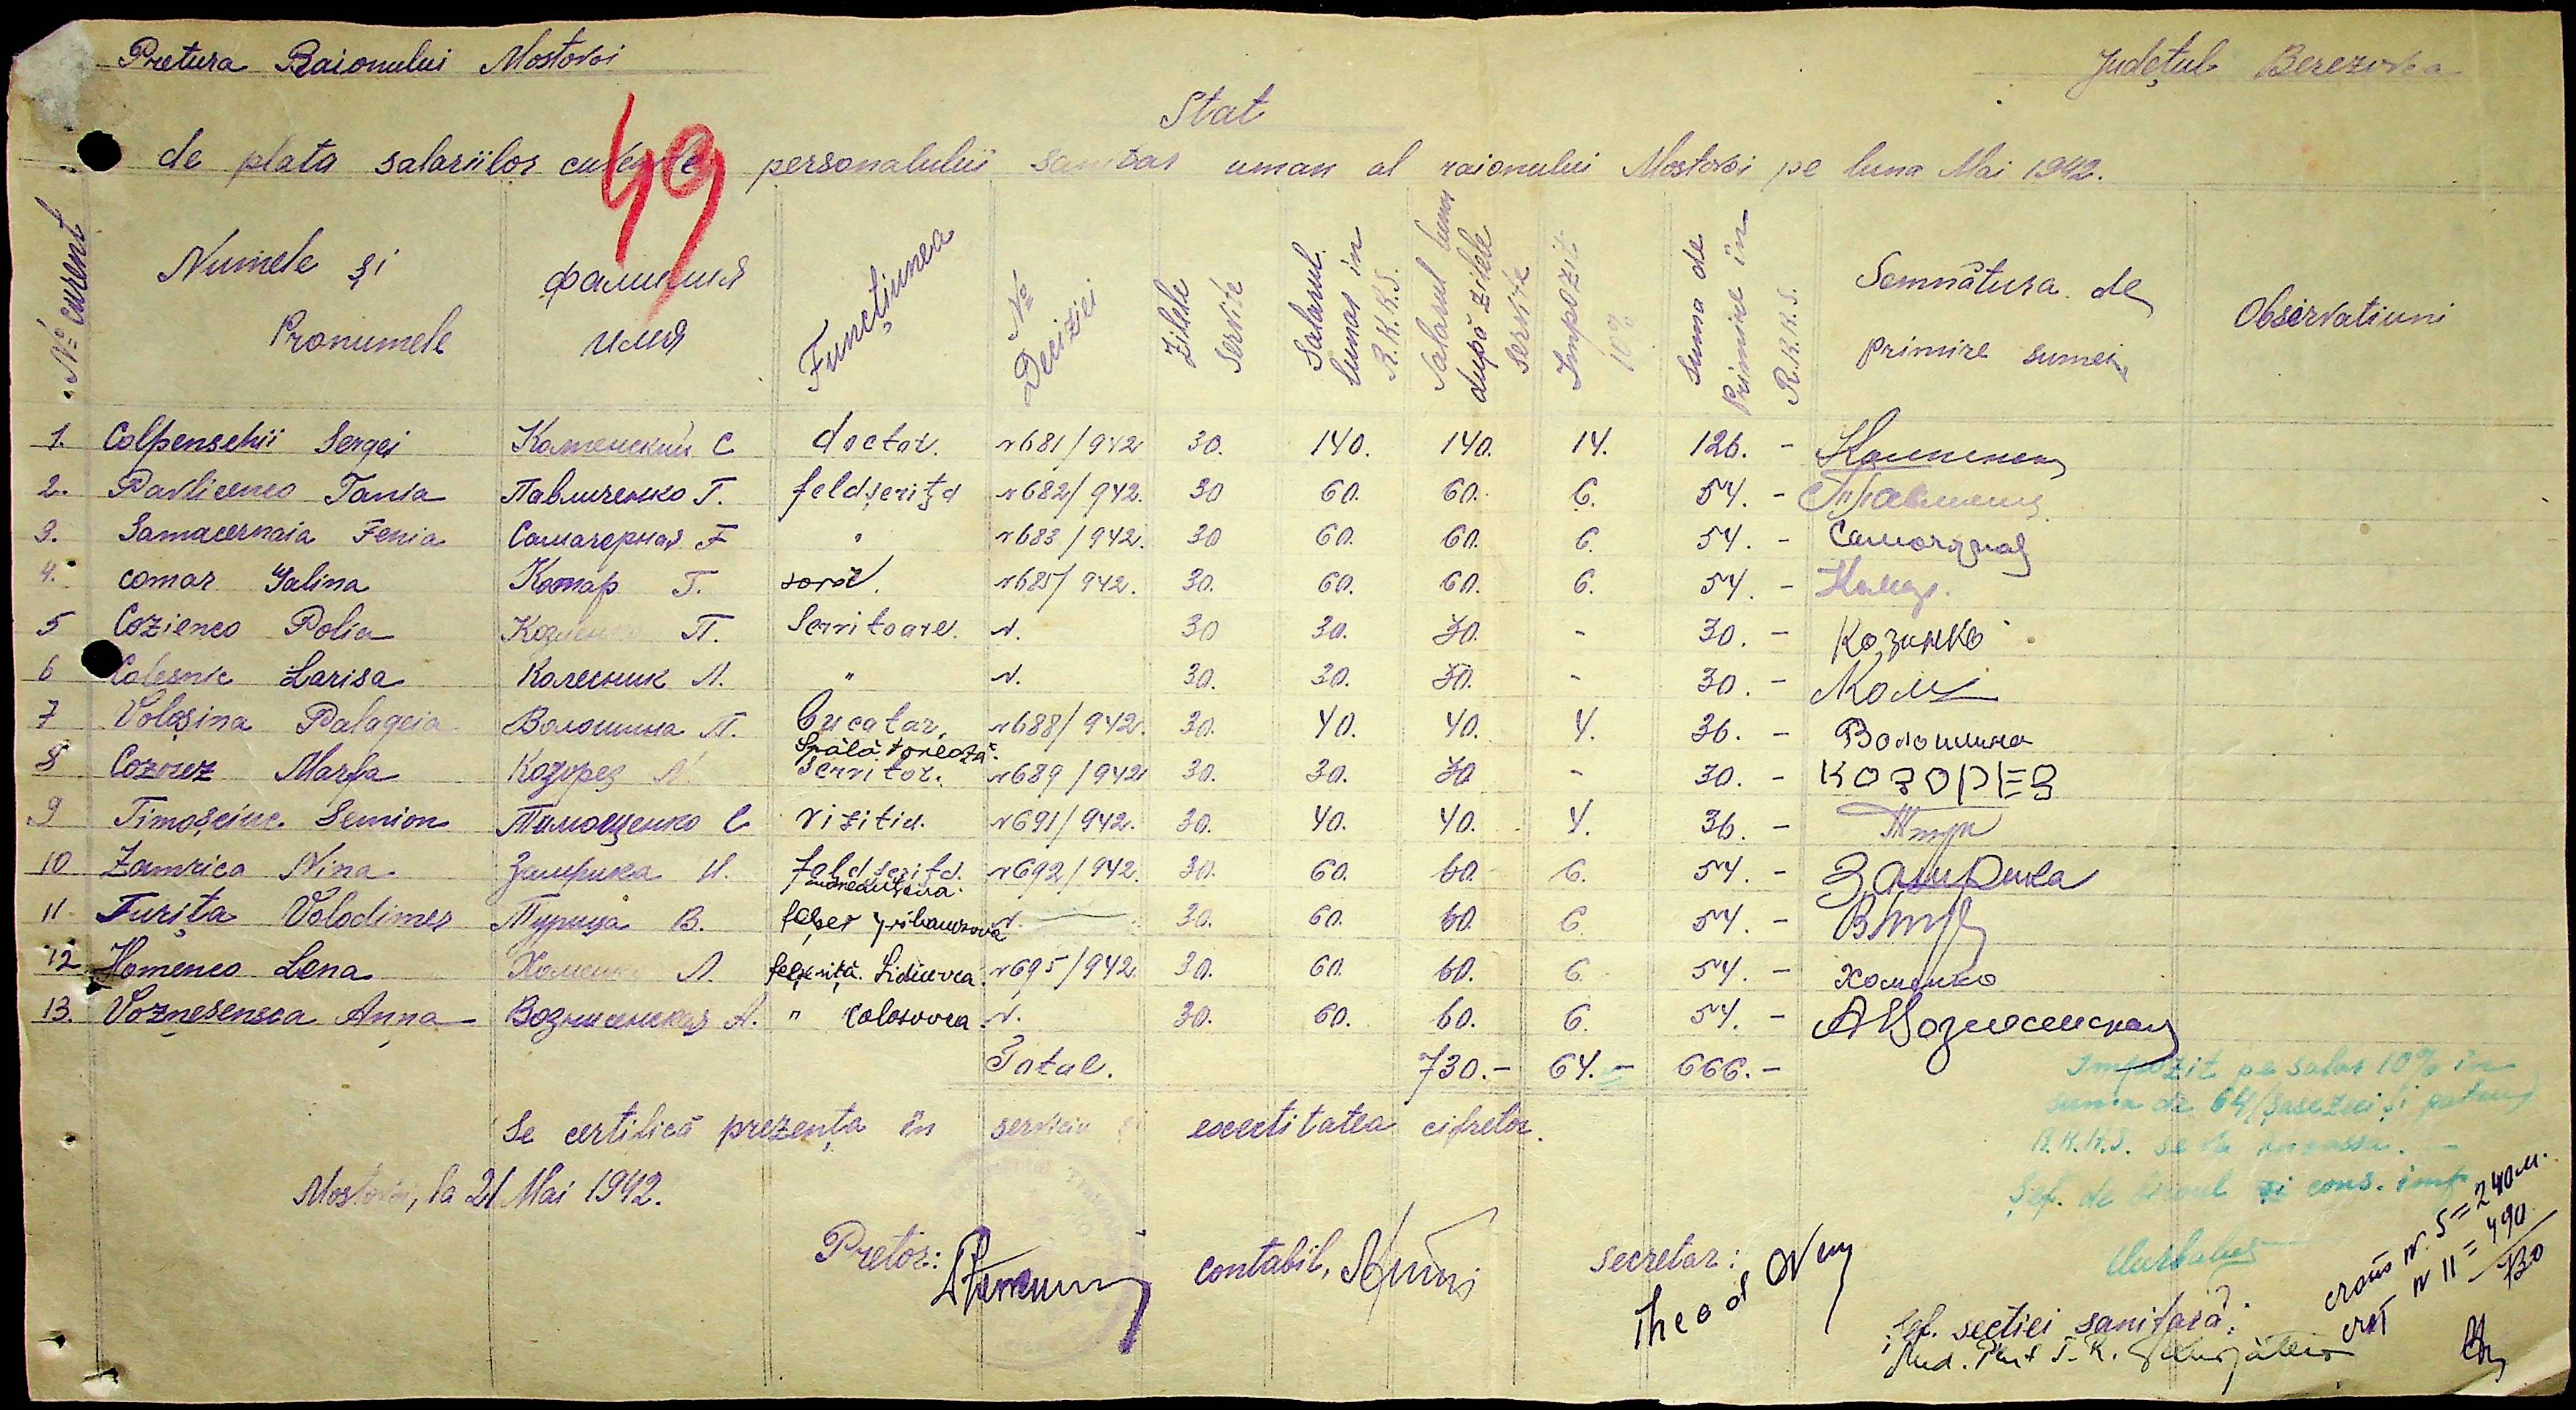 Pretura Raionului Mostovoi
Județul Berezovca
Stat
49
de plata salariilor cuvenite personalului sanitar uman al raionului Mostovoi pe luna Mai 1942.
№ curent
Numele și Pronumele
фамилия имя
Funcțiunea
№ Deciziei
Zilele servite
Salarul lunar in R.K.K.S.
Salarul lunar după zilele servite
Impozit 10%
Suma de Primire în R.K.K.S.
Semnătura de primire sumei
Observatiuni
1. Sergei Каменский С doctor. №681/942 30. 140. 140. 14. 126. -
2. Pavlicenco Tania Павличенко Т. №682/942. 30 60. 60. 6. 54. -
3. Samacernaia Fenia Самачерная F " №683/942. 30 60. 60. 6. 54. -
4. comar Galina Комар Г. soră. №685/942. 30. 60. 60. 6. 54. - Комар.
5 Cozienco Polia П. Servitoare. N. 30 30. 30. - 30. - Козинко
6 Colesnic Larisa Калесник Л. " N. 30. 30. 30. - 30. -
7 Voloșina Palageia Волошина П. Bucatar, №688/942. 30. 40. 40. 4. 36. - Волошина
8 Cozorez Marfa Козорез М. Spălătoreasă servitor. №689/942 30. 30. 30 - 30. - КОЗОРЕЗ
9 Semion Тимощенко С vizitiu. №691/942. 30. 40. 40. 4. 36. -
10 Zamrica Nina Замрика Н. №692/942. 30. 60. 60. 6. 54. - Замрика
11. Turița Volodimer Турица В. N. 30. 60. 60. 6. 54. -
12 Homenco Lena Хоменко Л. №695/942. 30. 60. 60. 6 54. - Хоменко
13. Voznesensca Anna Вознисенская А. " Colosovca. N. 30. 60. 60. 6. 54. - АВознесенская
Total. 730.- 64.- 666.-
Se certifică prezența în serviciu și exectitatea cifrelor.
Mostovoi, la 21 Mai 1942.
Impozit pe salar 10% în
suma de 64 (șasezeci și patru)
R.K.K.S. se
Șef. de
Pretor:
contabil,
secretar:
Theod
Șef. secției sanitară:
N. 5 = 240 м.
N 11 = 490
730